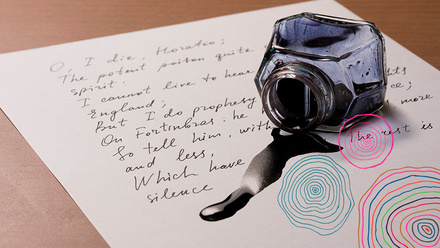 O, I die, Horatio;
The potent poison quite
spirit.
I cannot live to hear
England;
But I do prophesy
On Fortinbras: he
So tell him, with more
and less, The rest is
Which have
silence